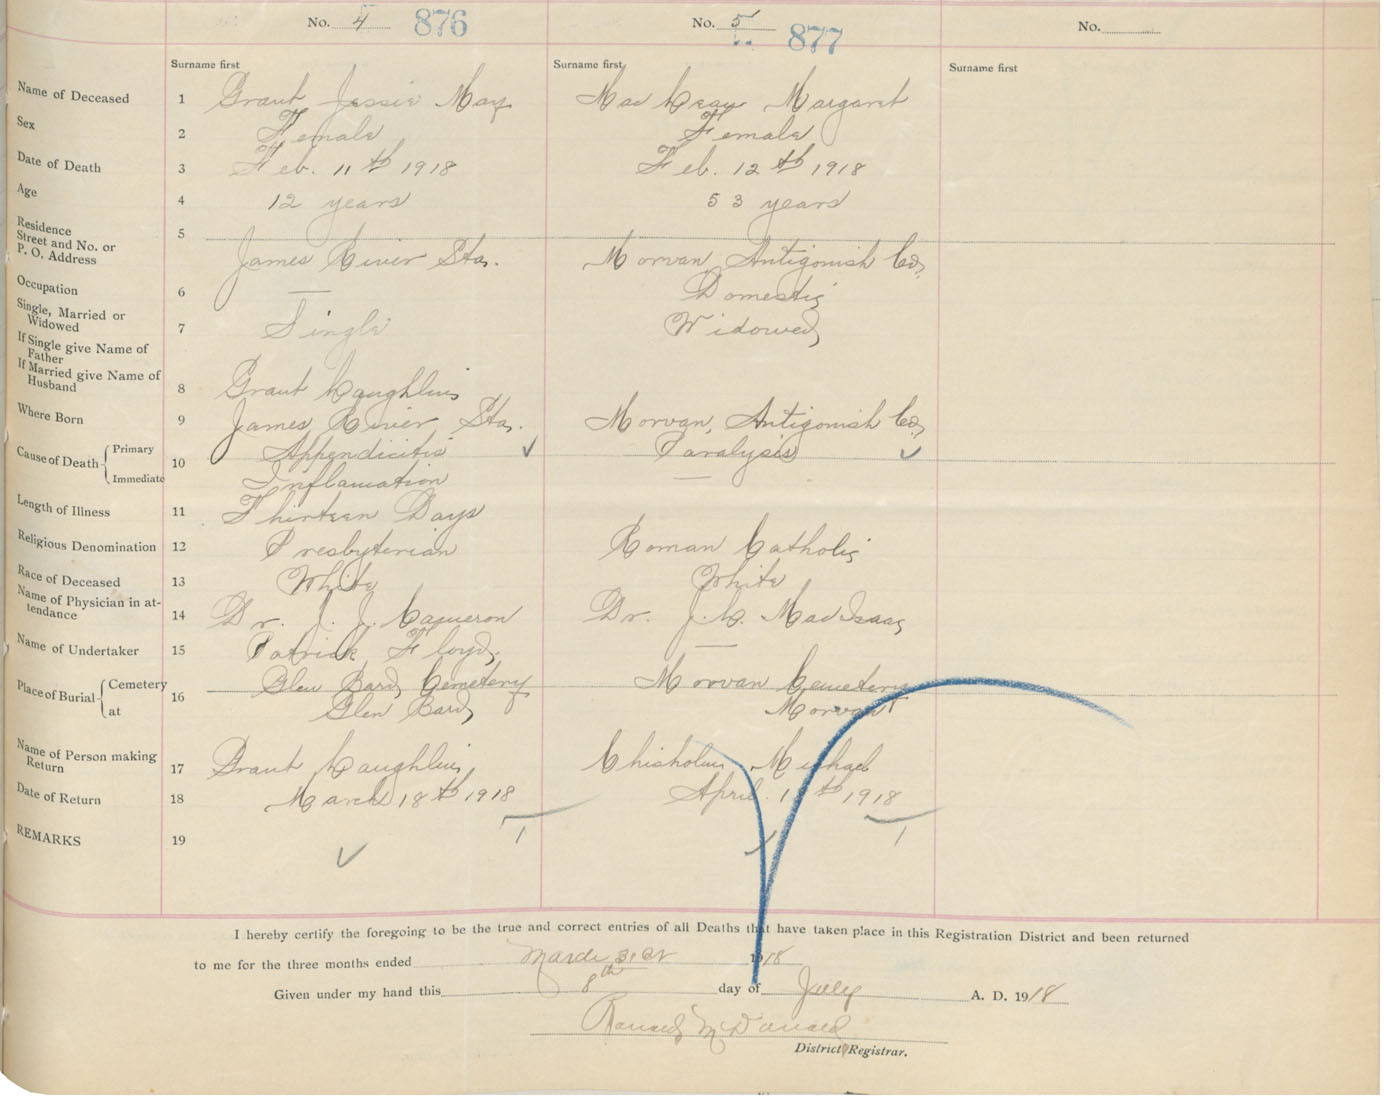 No. 4 876 No. 5 877 No.
Surname first Surname first Surname first
Name of Deceased 1 Grant Jessie May Margaret
Sex 2 Female Female
Date of Death 3 Feb. 11th 1918 Feb. 12th 1918
Age 4 12 years 53 years
Residence
Street and No. or
P. O. Address
5 James River Sta. Morvan, Antigonish Co,
Occupation 6 — Domestic
Single, Married or
Widowed
7 Single Widowed
If Single give Name of
Father
If Married give Name of
Husband
8 Grant Laughlin
Where Born 9 James River Sta. Morvan, Antigonish Co,
Cause of Death Primary Appendicitis Paralysis
10
Immediate Inflamation —
Length of Illness 11 Thirteen Days
Religious Denomination 12 Presbyterian Roman Catholic
Race of Deceased 13 White White
Name of Physician in at-
tendance
14 Dr. J. J. Cameron Dr. MacIsaac
Name of Undertaker 15 Patrick Floyd —
Place of Burial Cemetery Glen Bard Cemetery Morvan Cemetery
16
at Glen Bard Morvan
Name of Person making
Return
17 Grant Laughlin Chisholm Michael
Date of Return 18 March 18th 1918 April 1918
REMARKS 19
I hereby certify the foregoing to be the true and correct entries of all Deaths that have taken place in this Registration District and been returned
to me for the three months ended March 31st 1918
Given under my hand this 8th day of July A. D. 1918
Ronald McDonald
District Registrar.